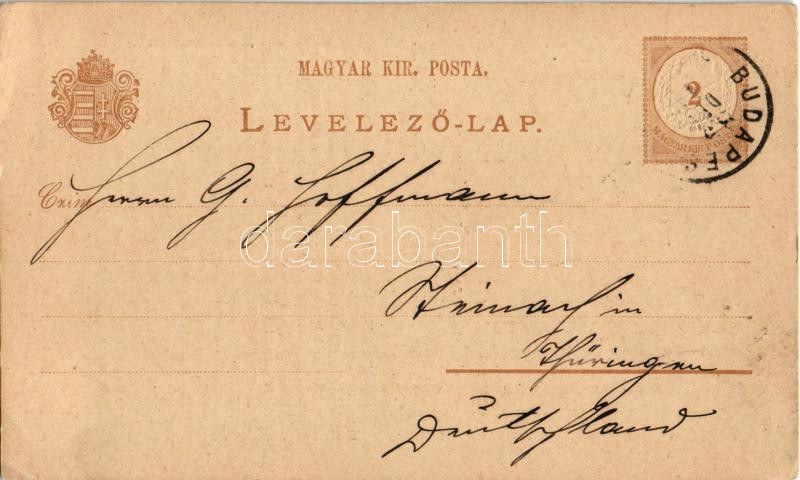 MAGYAR KIR. POSTA.
LEVELEZŐ-LAP.
2
MAGYAR KIR. POSTA
BUDAPES
Czim Herrn G. Hoffmann
darabanth
Steinach in
Thüringen
Deutschland